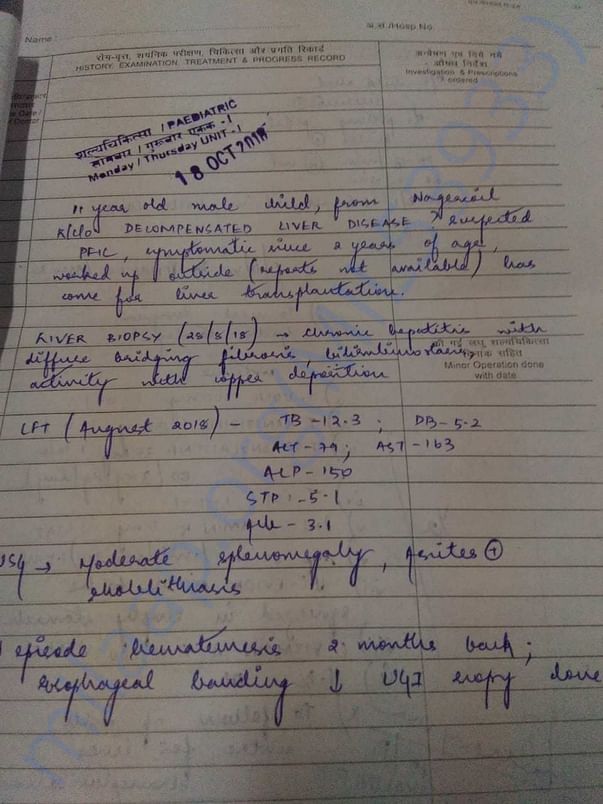 Name :
अ.सं./Hosp No.
रोग-वृत्त, शारीरिक परीक्षण, चिकित्सा और प्रगति रिकार्ड
HISTORY, EXAMINATION, TREATMENT & PROGRESS RECORD
Investigation & Prescriptions
ordered
शल्यचिकित्सा / PAEDIATRIC
सोमवार / गुरूवार एकक -I
Monday / Thursday UNIT -I
18 OCT 2018
11 year old male child, from Nagercoil
K/c/o DECOMPENSATED LIVER DISEASE ? suspected
PFIC, symptomatic since 2 years of age,
worked up outside (reports not available) has
come for liver transplantation.
LIVER BIOPSY (28/8/18) → chronic hepatitis with
diffuse bridging fibrosis
activity with copper deposition
Minor Operation done
with date
LFT (August 2018) – TB – 12.3 ; DB – 5.2
ALT – 79; AST – 163
ALP – 150
STP – 5.1
Alb – 3.1
USG → Moderate splenomegaly, Ascites +
cholelithiasis
episode hematemesis 2 months back;
esophageal banding ↓ UGI scopy done